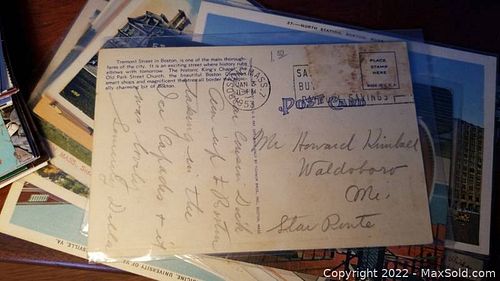 27—NORTH STATION, BOSTON, MASS.
1.50
Tremont Street in Boston, is one of the main thorough-
fares of the city. It is an exciting street where history rubs
elbows with tomorrow. The historic King's Chapel, the
Old Park Street Church, the beautiful Boston Common,
smart shops and magnificent theatres all border this
ally charming bit of Boston.
BOSTON
MASS.
JAN
1953
PLACE
STAMP
HERE
POST CARD
SAVINGS
Cousin Dick
am up to Boston
taking in the
Ice Capades & it
was lovely
Mr Howard Kimball
Waldoboro
Me.
Star Route
UNIVERSITY OF VA.
SVILLE, VA.
Copyright 2022 - MaxSold.com